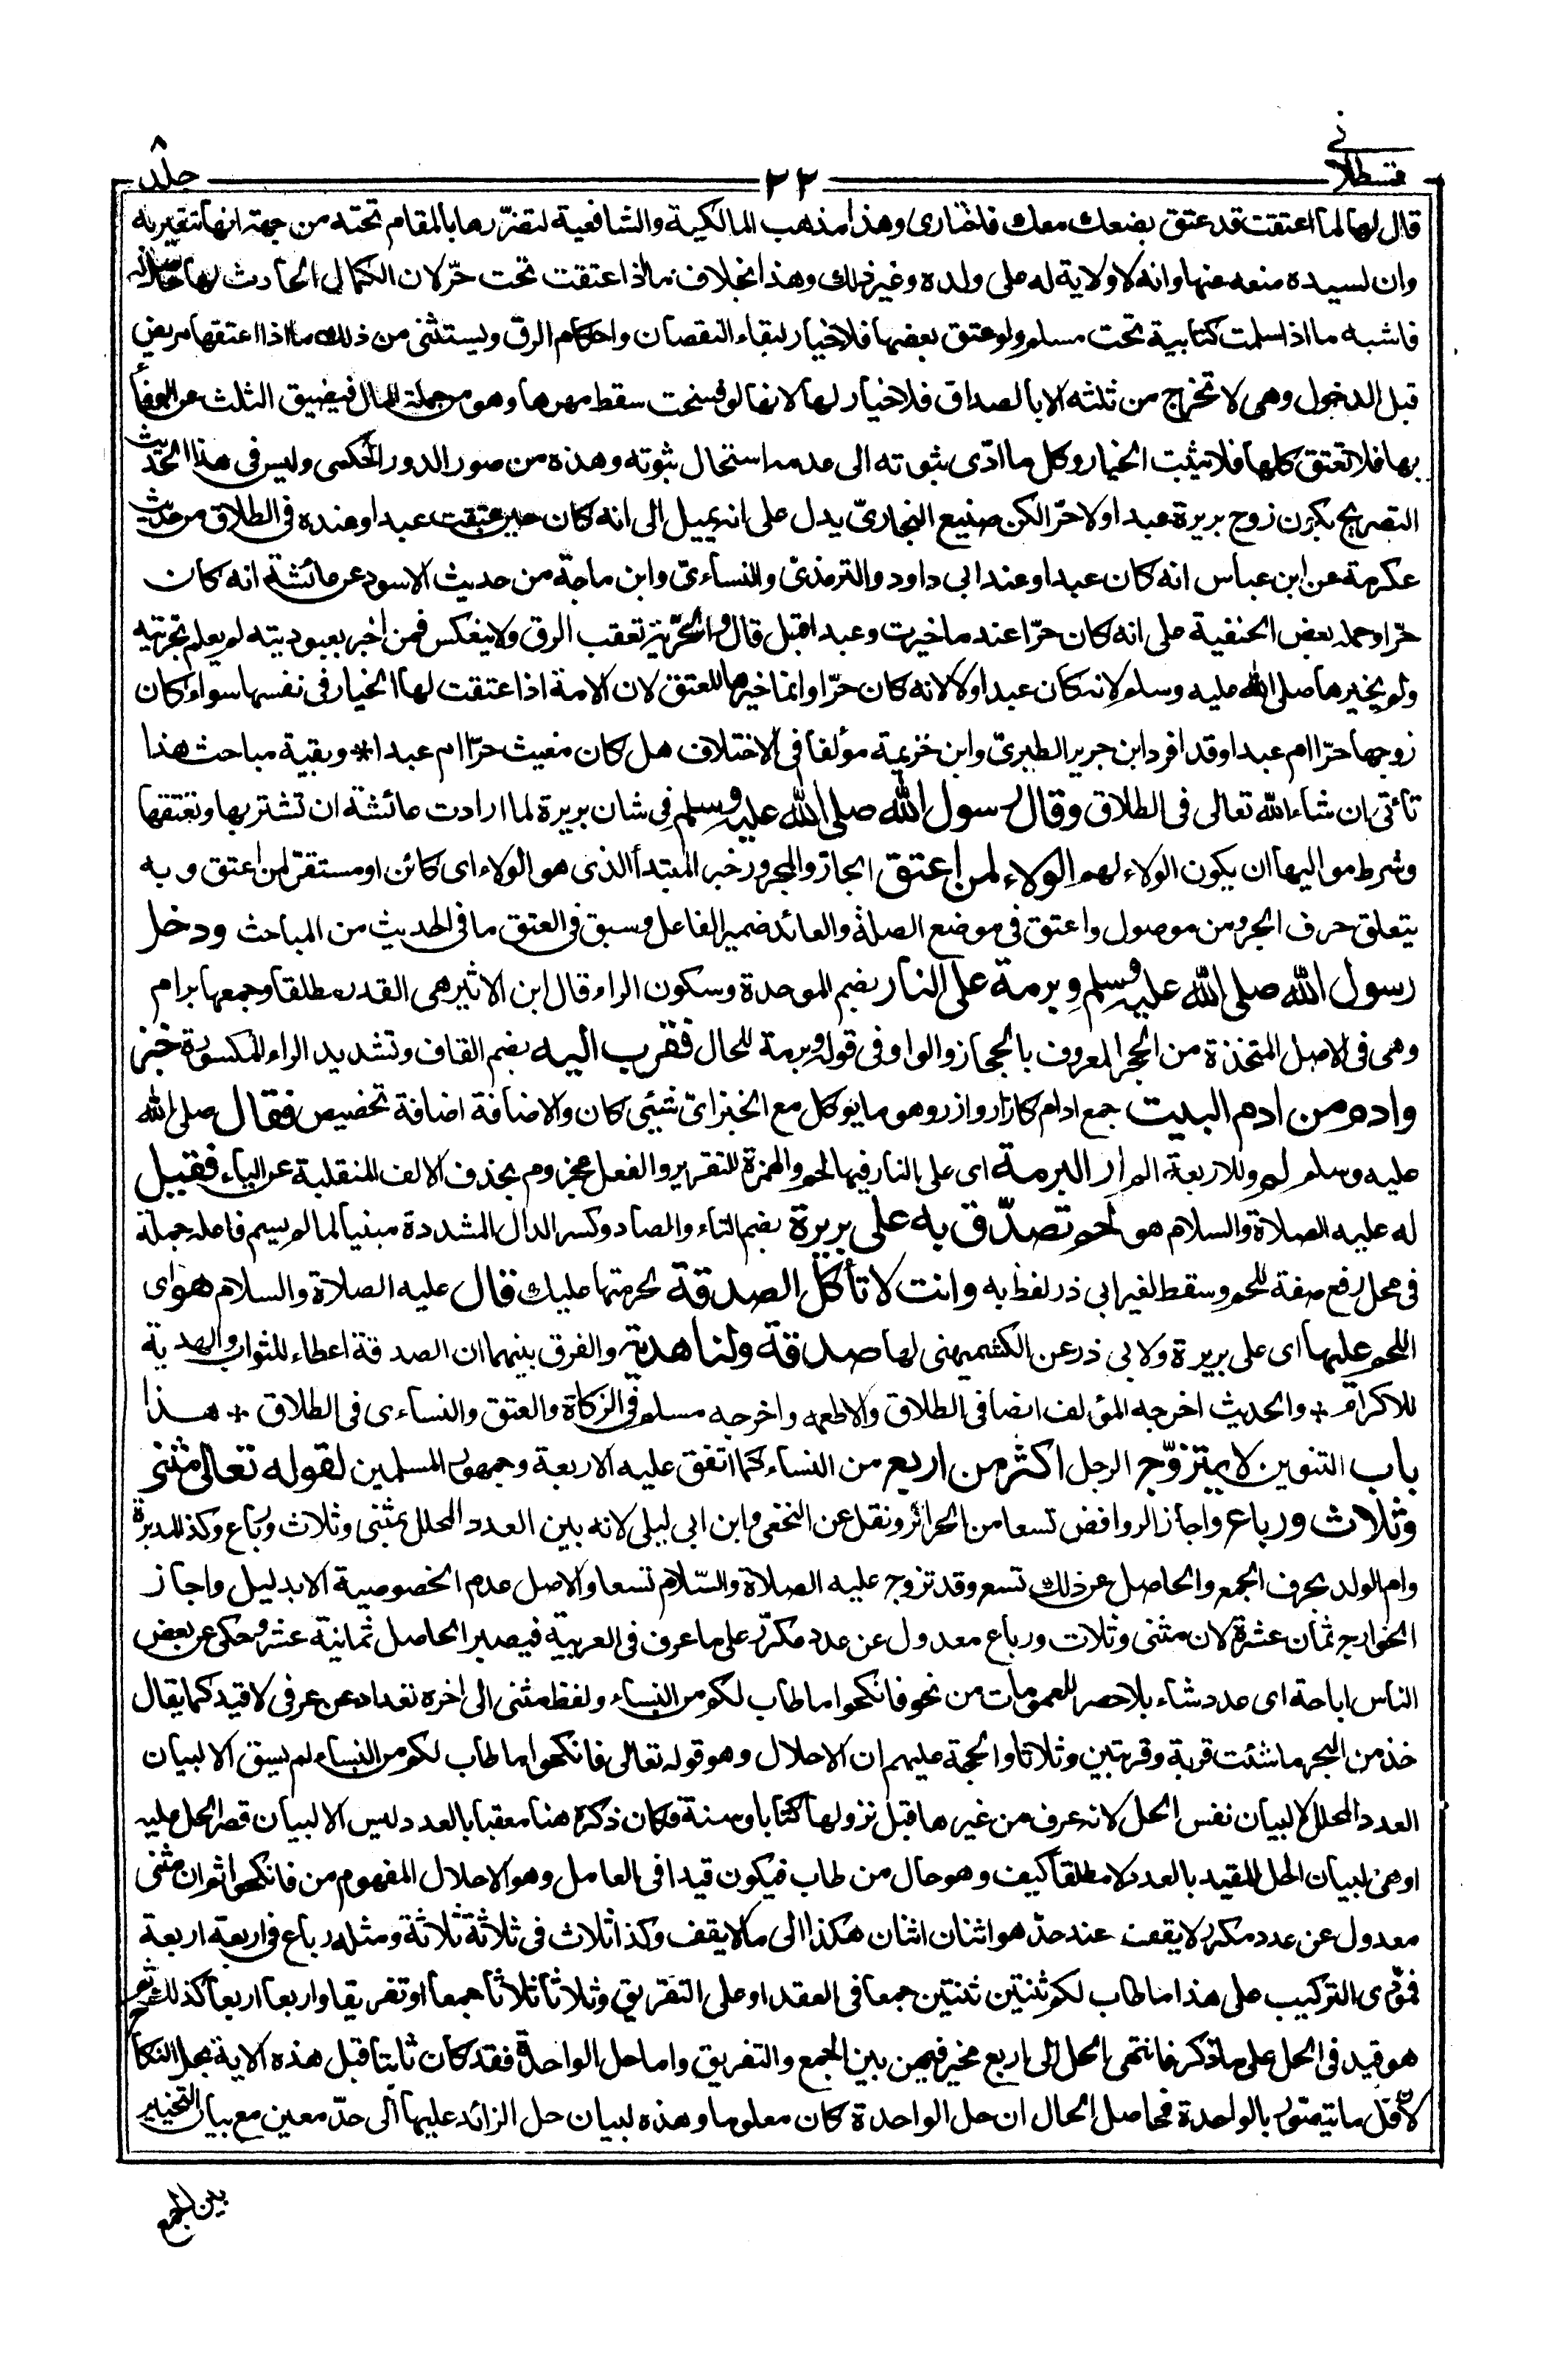 قسطلانی
٢٢
جلد ٨
قال لها لما اعتقت قد عتق بضعك معك فاختاری وهذا مذهب المالكية والشافعية لتضرّرها بالمقام تحته من جهة انها تتعير به
وان لسيده منعه عنها وانه لا ولاية له على ولده وغير ذلك وهذا بخلاف ما اذا عتقت تحت حرّ لان الكمال الحادث لها حاصل له
فاشبه ما اذا اسلمت كتابية تحت مسلم ولو عتق بعضها فلا خيار لبقاء النقصان واحكام الرق ويستثنى من ذلك ما اذا اعتقها مريض
قبل الدخول وهی لا تخرج من ثلثه الا بالصداق فلا خيار لها لانها لو فسخت سقط مهرها وهو من جملة المال فيضيق الثلث عن الوفاء
بها فلا تعتق كلها فلا يثبت الخيار وكل ما ادّى ثبوته الى عدمه استحال ثبوته وهذه من صور الدور الحكمی وليس فی هذا الحديث
التصريح بكون زوج بريرة عبدا ولا حرّا لكن صنيع البخاریّ يدل على انه يميل الى انه كان حين عتقت عبدا وعنده فی الطلاق من حديث
عكرمة عن ابن عباس انه كان عبدا وعند ابی داود والترمذیّ والنساءیّ وابن ماجة من حديث الاسود عن عائشة انه كان
حرّا وحمله بعض الحنفية على انه كان حرّا عند ما خيرت وعبدا قبل قال والحرّية تعقب الرق ولا ينعكس فمن اخبر بعبوديته لم يعلم بحريته
ولم يخيرها صلى الله عليه وسلم لانه كان عبدا ولا لانه كان حرّا وانما خيرها للعتق لان الامة اذا عتقت لها الخيار فی نفسها سواء كان
زوجها حرّا ام عبدا وقد افرد ابن جرير الطبریّ وابن خزيمة مؤلفا فی الاختلاف هل كان مغيث حرّا ام عبدا * وبقية مباحث هذا
تأتی ان شاء الله تعالى فی الطلاق وقال رسول الله صلى الله عليه وسلم فی شان بريرة لما ارادت عائشة ان تشتريها وتعتقها
وشرط مواليها ان يكون الولاء لهم الولاء لمن اعتق الجارّ والمجرور خبر المبتدأ الذی هو الولاء ای كائن او مستقرّ لمن اعتق وبه
يتعلق حرف الجر ومن موصول واعتق فی موضع الصلة والعائد ضمير الفاعل وسبق فی العتق ما فی الحديث من المباحث ودخل
رسول الله صلى الله عليه وسلم وبرمة على النار بضم الموحدة وسكون الراء قال ابن الاثير هی القدر مطلقا وجمعها برام
وهی فی الاصل المتخذة من الحجر المعروف بالحجاز والواو فی قوله وبرمة للحال فقرب اليه بضم القاف وتشديد الراء المكسورة خبز
وادم من ادم البيت جمع ادام كازار وازر وهو ما يوكل مع الخبز ایّ شیئ كان والاضافة اضافة تخصيص فقال صلى الله
عليه وسلم لم وللاربعة الم ار البرمة ای على النار فيها لحم والهمزة للتقرير والفعل مجزوم بحذف الالف المنقلبة عن الياء فقيل
له عليه الصلاة والسلام هو لحم تصدّق به على بريرة بضم التاء والصاد وكسر الدال المشددة مبنيا لما لم يسم فاعله جملة
فی محل رفع صفة للحم وسقط لغير ابی ذر لفظ به وانت لا تأكل الصدقة لحرمتها عليك قال عليه الصلاة والسلام هو ای
اللحم عليها ای على بريرة ولابی ذر عن الكشميهنی لها صدقة ولنا هدية والفرق بينهما ان الصدقة اعطاء للثواب والهدية
للاكرام * والحديث اخرجه المؤلف ايضا فی الطلاق والاطعمة واخرجه مسلم فی الزكاة والعتق والنساءی فی الطلاق * هذا
باب التنوين لا يتزوّج الرجل اكثر من اربع من النساء كما اتفق عليه الاربعة وجمهور المسلمين لقوله تعالى مثنى
وثلاث ورباع واجاز الروافض تسعا من الحرائر ونقل عن النخعی وابن ابی ليلى لانه بين العدد المحلل بمثنى وثلاث ورباع وكذا المدبرة
وام الولد بحرف الجمع والحاصل عن ذلك تسع وقد تزوج عليه الصلاة والسّلام تسعا والاصل عدم الخصوصية الا بدليل واجاز
الخوارج ثمان عشرة لان مثنى وثلاث ورباع معدول عن عدد مكرّر على ما عرف فی العربية فيصير الحاصل ثمانية عشر وحكى عن بعض
الناس اباحة ای عدد شاء بلا حصر للعمومات من نحو فانكحوا ما طاب لكم من النساء ولفظ مثنى الى اخره تعداد عرفی لا قيد كما يقال
خذ من البحر ما شئت قربة وقربتين وثلاثا والحجة عليهم ان الاحلال وهو قوله تعالى فانكحوا ما طاب لكم من النساء لم يسق الا لبيان
العدد المحلل لا لبيان نفس الحل لانه عرف من غيرها قبل نزولها كتابا وسنة فكان ذكره هنا معقبا بالعدد ليس الا لبيان قصر الحل عليه
او هی لبيان الحل المقيد بالعدد لا مطلقا كيف وهو حال من طاب فيكون قيدا فی العامل وهو الاحلال المفهوم من فانكحوا ثم ان مثنى
معدول عن عدد مكرر لا يقف عند حدّ هو اثنان اثنان هكذا الى ما لا يقف وكذا ثلاث فی ثلاثة ثلاثة ومثله رباع فی اربعة اربعة
فمؤدی التركيب على هذا ما طاب لكم ثنتين ثنتين جمعا فی العقد او على التفريق وثلاثا ثلاثا جمعا او تفريقا واربعا اربعا كذلك ثم
هو قيد فی الحل على ما ذكر فانتهى الحل الى اربع مخير فيهن بين الجمع والتفريق واما حل الواحدة فقد كان ثابتا قبل هذه الاية بحل النكاح
لان اقل ما يتصور بالواحدة فحاصل الحال ان حل الواحدة كان معلوما وهذه لبيان حل الزائد عليها الى حدّ معين مع بيان التخيير
بين الجمع